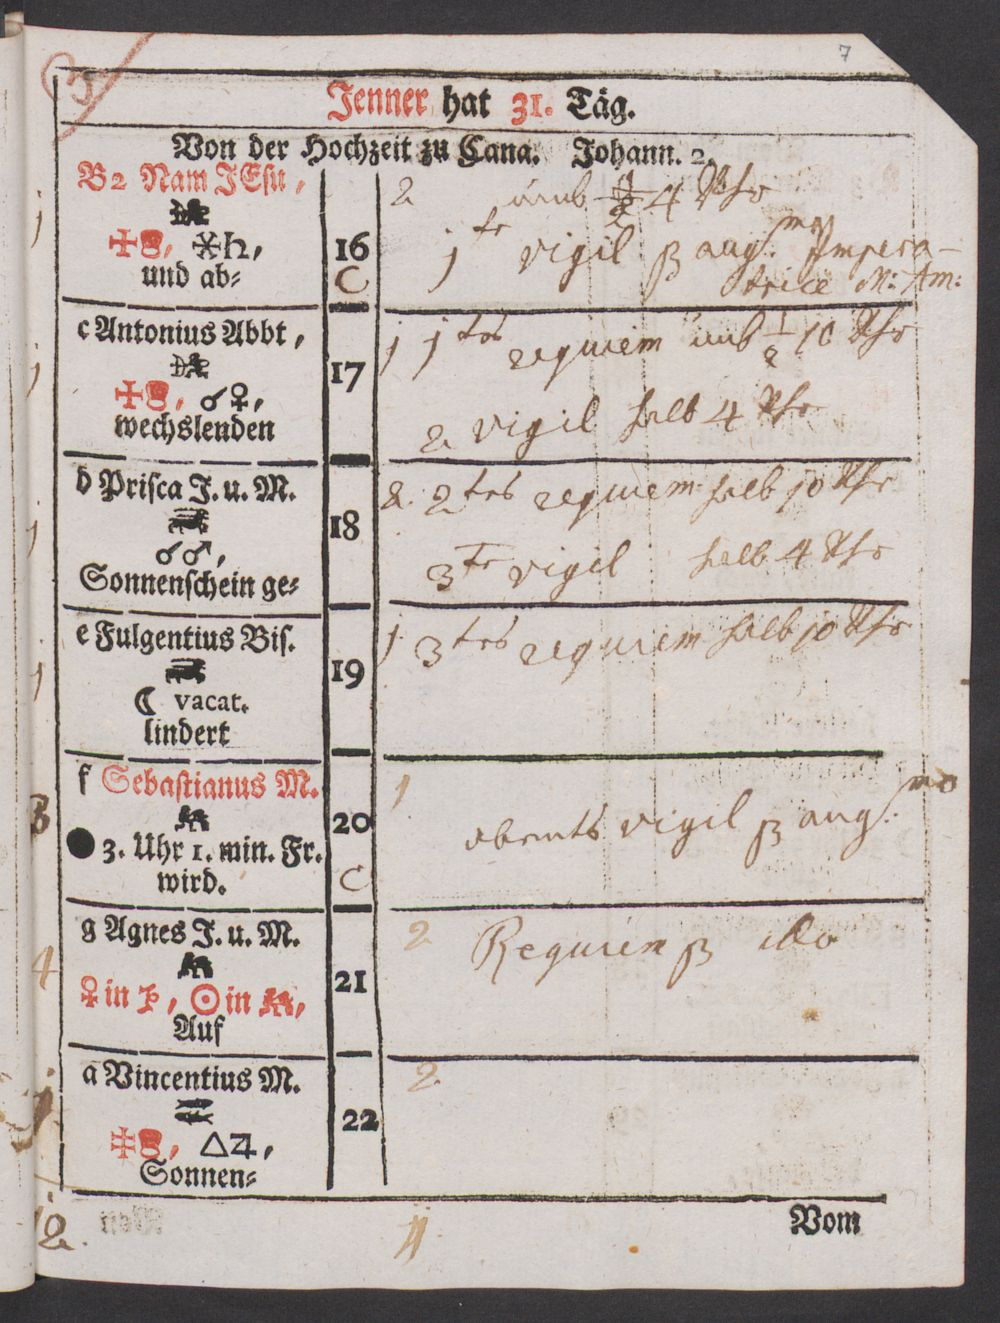 7
Jenner hat 31. Täg.
Von der Hochzeit zu Cana. Johann. 2.
B2 Nam JEsu,
und ab-
16
C
2 umb ½ 4 Uhr
1te vigil pro aug. mo Impera-
trice M: Am:
c Antonius Abbt,
☌♀,
wechslenden
17
1 1tes requiem umb ½ 10 Uhr
2 vigil halb 4 Uhr
d Prisca J. u. M.
☌♂,
Sonnenschein ge-
18
2. 2tes requiem halb 10 Uhr
3te vigil halb 4 Uhr
e Fulgentius Bis.
☾ vacat.
lindert
19
1. 3tes requiem halb 10 Uhr
f Sebastianus M.
● 3. Uhr 1. min. Fr.
wird.
20
C
1
abents vigil pro aug. mo
g Agnes J. u. M.
♀ in ♑, ☉ in ♒,
Auf
21
2 Requiem pro
a Vincentius M.
△♃,
Sonnen-
22
2
Vom